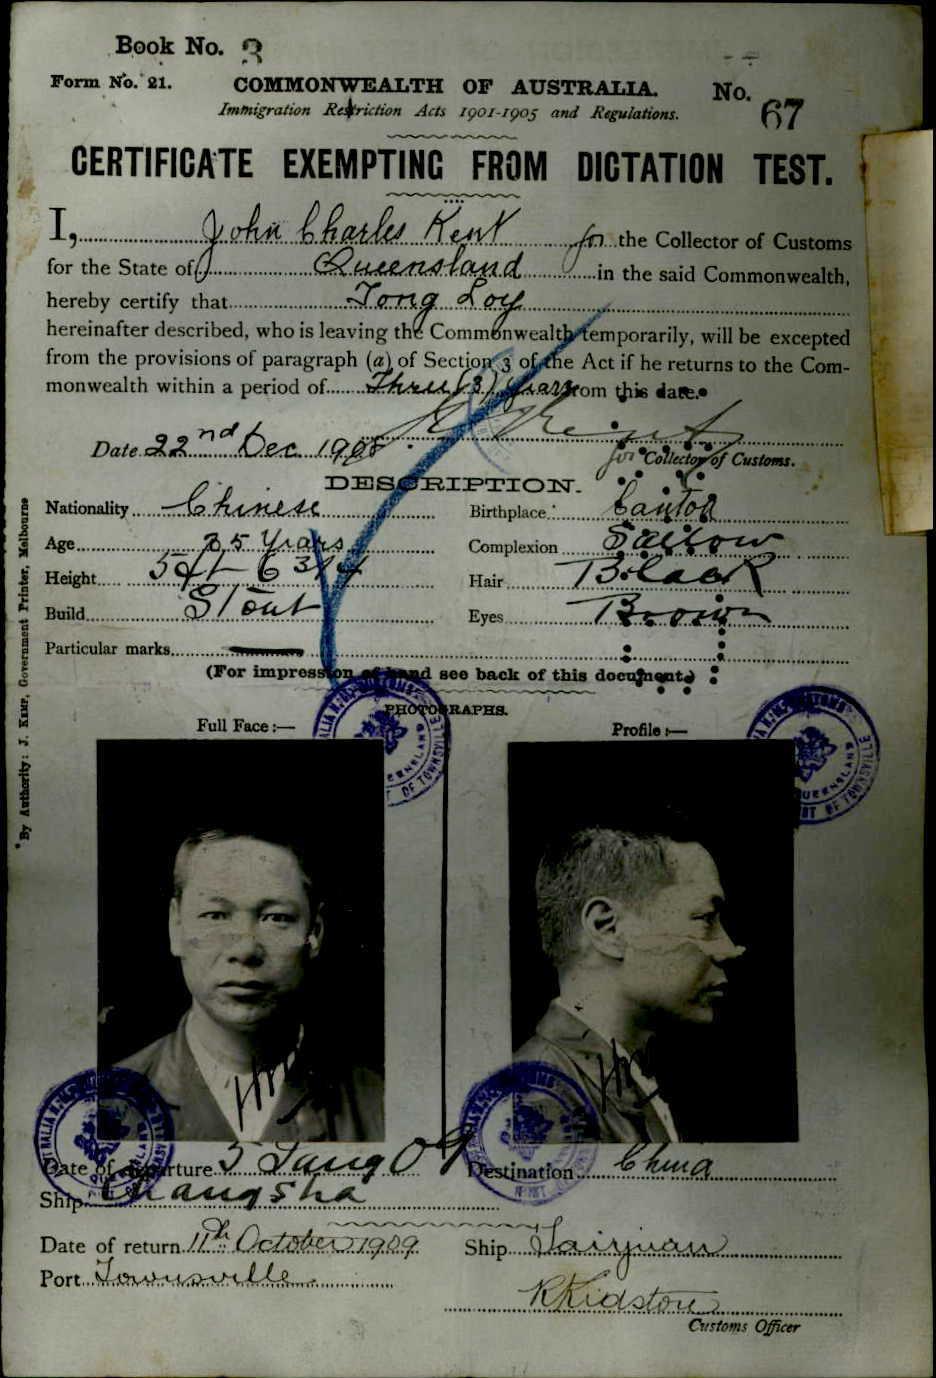 Book No. 3
Form No. 21.
COMMONWEALTH OF AUSTRALIA.
No. 67
Immigration Restriction Acts 1901-1905 and Regulations.
CERTIFICATE EXEMPTING FROM DICTATION TEST.
I, John Charles Kent for the Collector of Customs
for the State of Queensland in the said Commonwealth,
hereby certify that Tong Loy
hereinafter described, who is leaving the Commonwealth temporarily, will be excepted
from the provisions of paragraph (a) of Section 3 of the Act if he returns to the Com-
monwealth within a period of Three (3) years from this date.
Date 22nd Dec 1908
for Collector of Customs.
DESCRIPTION.
Nationality Chinese
Birthplace Canton
Age 35 Years
Complexion Sallow
Height 5ft 6 3/4
Hair Black
Build Stout
Eyes Brown
Particular marks
(For impression of hand see back of this document.)
PHOTOGRAPHS.
Full Face:—
Profile:—
By Authority: J. Kemp, Government Printer, Melbourne
Date of departure 5 Jany 09
Destination China
Ship Changsha
Date of return 11th October 1909
Ship Taiyuan
Port Townsville
R Kidston
Customs Officer